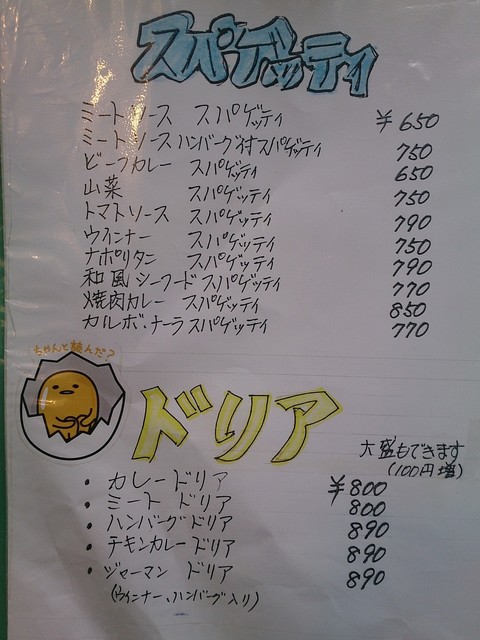 スパゲッティ
ミートソース スパゲッティ ¥650
ミートソースハンバーグ付スパゲッティ 750
ビーフカレー スパゲッティ 650
山菜 スパゲッティ 750
トマトソース スパゲッティ 790
ウインナー スパゲッティ 750
ナポリタン スパゲッティ 790
和風シーフードスパゲッティ 770
焼肉カレー スパゲッティ 850
カルボナーラスパゲッティ 770
ちゃんと読んだ?
ドリア
大盛もできます
(100円増)
・カレードリア ¥800
・ミートドリア 800
・ハンバーグドリア 890
・チキンカレードリア 890
・ジャーマンドリア 890
(ウインナー、ハンバーグ入り)